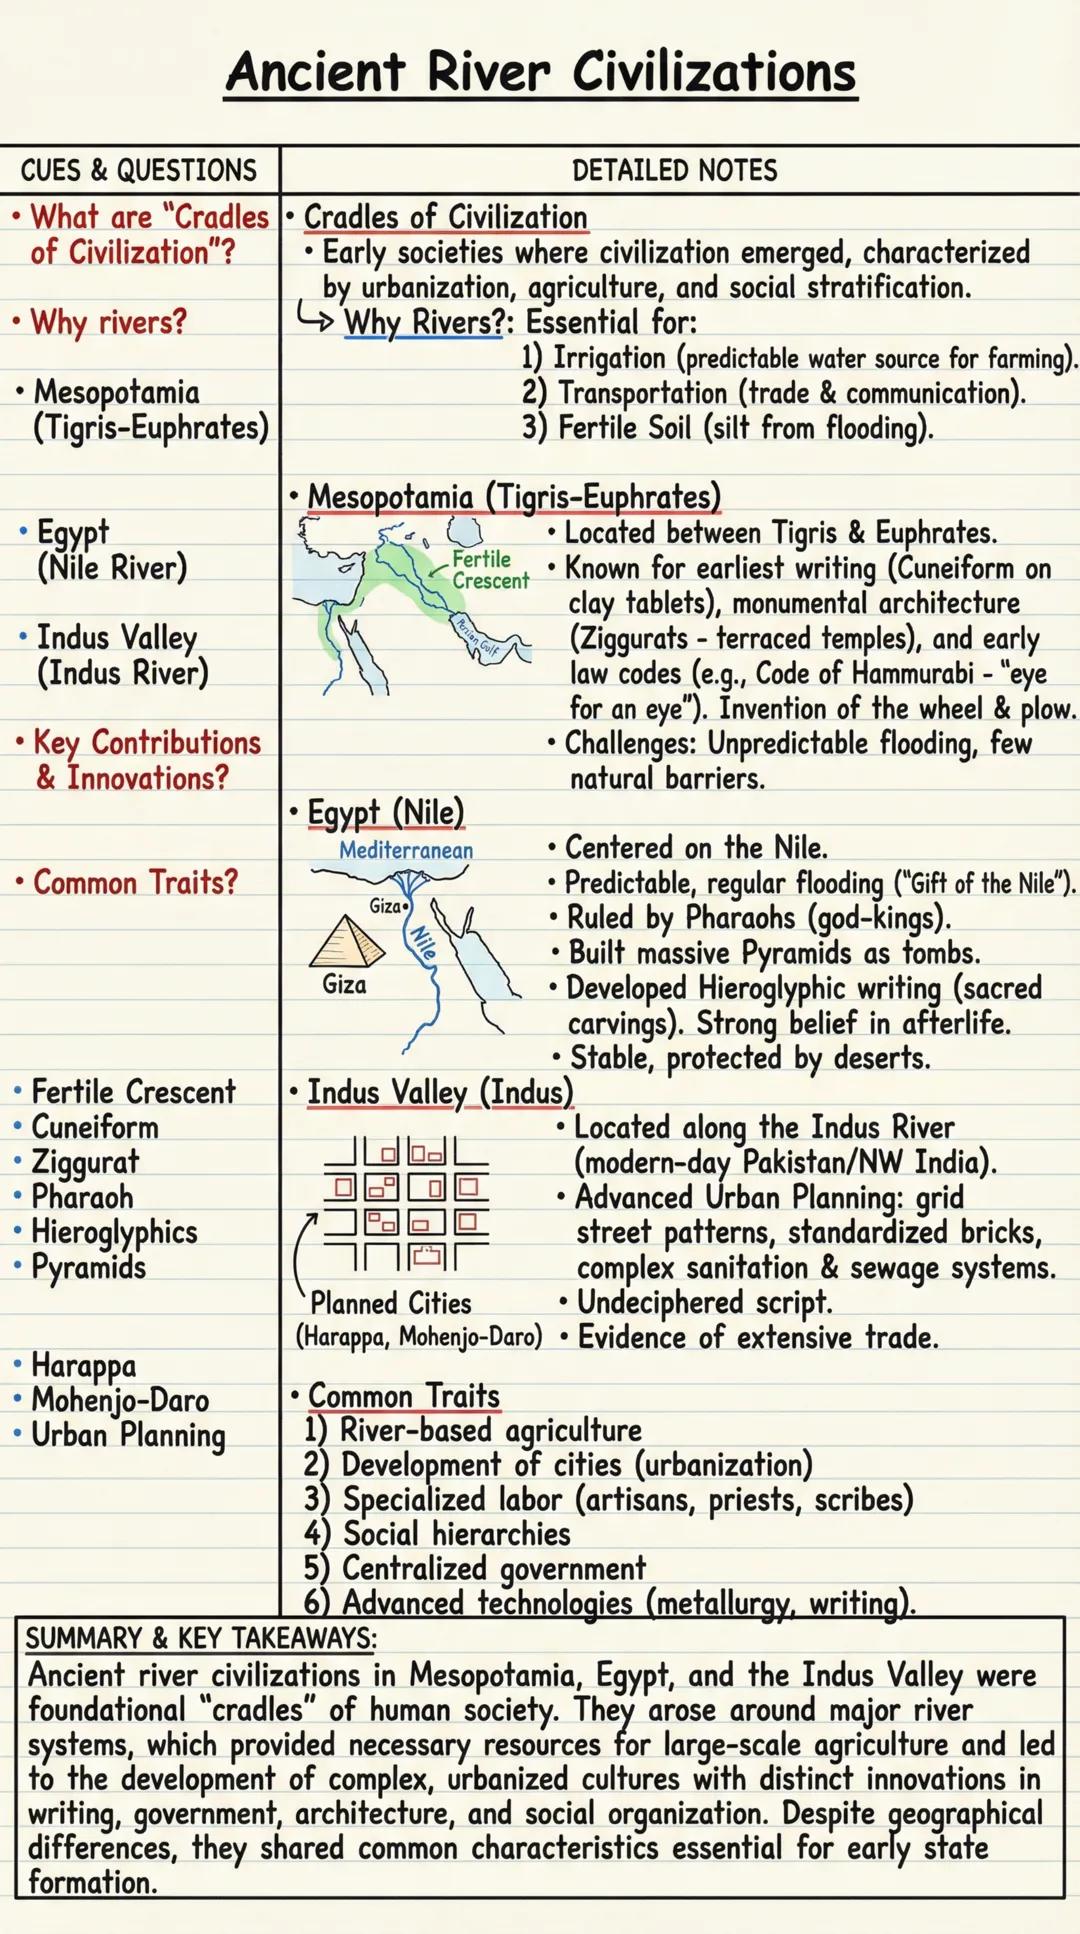 Ancient River Civilizations
CUES & QUESTIONS
• What are “Cradles
of Civilization”?
• Why rivers?
• Mesopotamia
(Tigris-Euphrates)
• Egypt
(Nile River)
• Indus Valley
(Indus River)
• Key Contributions
& Innovations?
• Common Traits?
• Fertile Crescent
• Cuneiform
• Ziggurat
• Pharaoh
• Hieroglyphics
• Pyramids
• Harappa
• Mohenjo-Daro
• Urban Planning
DETAILED NOTES
• Cradles of Civilization
• Early societies where civilization emerged, characterized
by urbanization, agriculture, and social stratification.
↳ Why Rivers?: Essential for:
1) Irrigation (predictable water source for farming).
2) Transportation (trade & communication).
3) Fertile Soil (silt from flooding).
• Mesopotamia (Tigris-Euphrates)
Fertile
Crescent
Persian Gulf
• Located between Tigris & Euphrates.
• Known for earliest writing (Cuneiform on
clay tablets), monumental architecture
(Ziggurats - terraced temples), and early
law codes (e.g., Code of Hammurabi - “eye
for an eye”). Invention of the wheel & plow.
• Challenges: Unpredictable flooding, few
natural barriers.
• Egypt (Nile)
Mediterranean
Giza
Nile
Giza
• Centered on the Nile.
• Predictable, regular flooding (“Gift of the Nile”).
• Ruled by Pharaohs (god-kings).
• Built massive Pyramids as tombs.
• Developed Hieroglyphic writing (sacred
carvings). Strong belief in afterlife.
• Stable, protected by deserts.
• Indus Valley (Indus)
Planned Cities
(Harappa, Mohenjo-Daro)
• Located along the Indus River
(modern-day Pakistan/NW India).
• Advanced Urban Planning: grid
street patterns, standardized bricks,
complex sanitation & sewage systems.
• Undeciphered script.
• Evidence of extensive trade.
• Common Traits
1) River-based agriculture
2) Development of cities (urbanization)
3) Specialized labor (artisans, priests, scribes)
4) Social hierarchies
5) Centralized government
6) Advanced technologies (metallurgy, writing).
SUMMARY & KEY TAKEAWAYS:
Ancient river civilizations in Mesopotamia, Egypt, and the Indus Valley were
foundational “cradles” of human society. They arose around major river
systems, which provided necessary resources for large-scale agriculture and led
to the development of complex, urbanized cultures with distinct innovations in
writing, government, architecture, and social organization. Despite geographical
differences, they shared common characteristics essential for early state
formation.